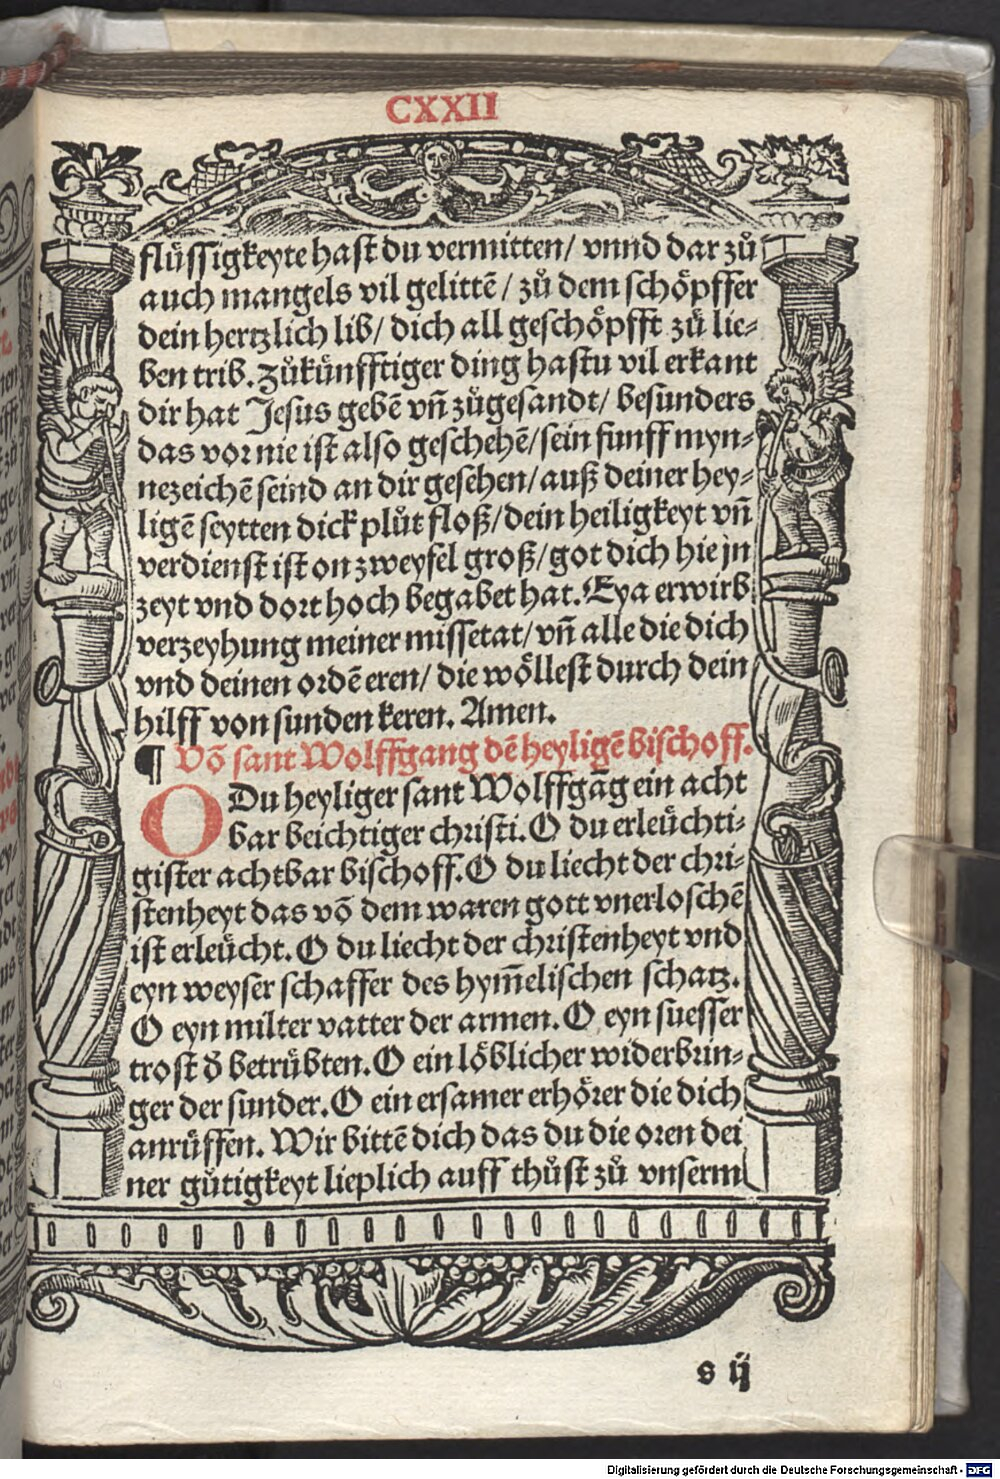 CXXII
flüssigkeyte hast du vermitten/ vnnd dar zů
auch mangels vil gelittē/ zů dem schöpffer
dein hertzlich lib/ dich all geschöpfft zů lie-
ben trib. zůkünfftiger ding hastu vil erkant
dir hat Jesus gebē vn̄ zůgesandt/ besunders
das vor nie ist also geschehē/ sein funff myn-
nezeichē seind an dir gesehen/ auß deiner hey-
ligē seytten dick plůt floß/ dein heiligkeyt vn̄
verdienst ist on zweyfel groß/ got dich hie jn
zeyt vnd dort hoch begabet hat. Eya erwirb
verzeyhung meiner missetat/ vn̄ alle die dich
vnd deinen ordē eren/ die wöllest durch dein
hilff von sunden keren. Amen.
¶ Vō sant Wolffgang dē heyligē bischoff.
O Du heyliger sant Wolffgāg ein acht
bar beichtiger christi. O du erleüchti-
gister achtbar bischoff. O du liecht der chri-
stenheyt das vō dem waren gott vnerloschē
ist erleücht. O du liecht der christenheyt vnd
eyn weyser schaffer des hym̄elischen schatz.
O eyn milter vatter der armen. O eyn suesser
trost d̕ betrübten. O ein löblicher widerbrin-
ger der sunder. O ein ersamer erhörer die dich
anrüffen. Wir bittē dich das du die oren dei
ner gütigkeyt lieplich auff thůst zů vnserm
s ij
Digitalisierung gefördert durch die Deutsche Forschungsgemeinschaft - DFG